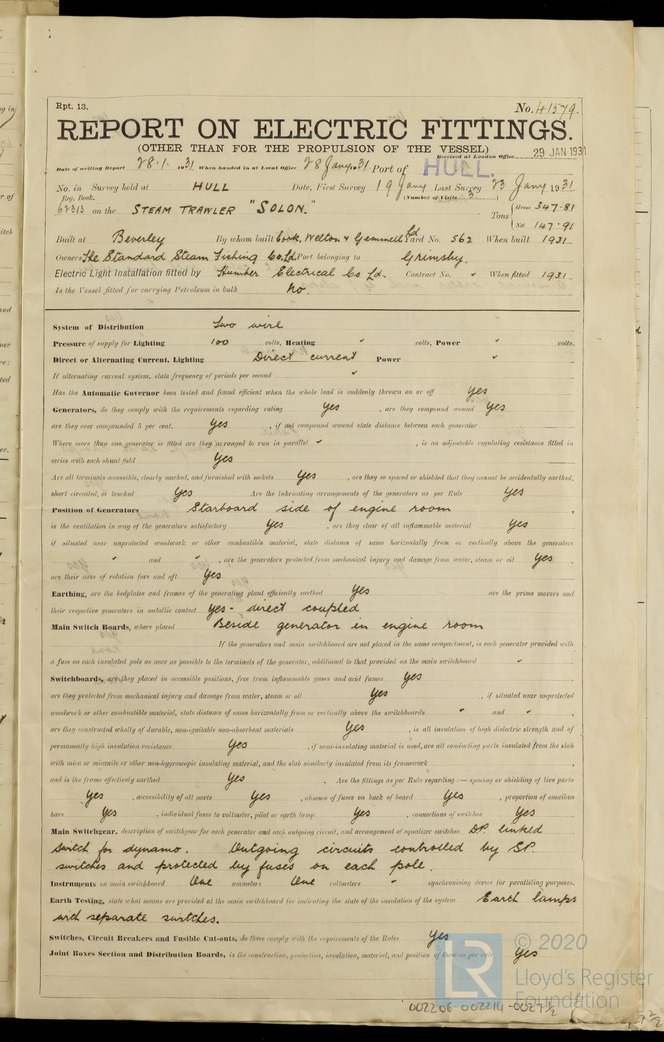 Rpt. 13.
No. 41579.
REPORT ON ELECTRIC FITTINGS.
(OTHER THAN FOR THE PROPULSION OF THE VESSEL)
Received at London Office 29 JAN 1931
Date of writing Report 28.1.1931 When handed in at Local Office 28 Jany. 31 Port of HULL.
No. in Survey held at HULL Date, First Survey 19 Jany Last Survey 23 Jany 1931.
Reg. Book. (Number of Visits 3.)
62313 on the STEAM TRAWLER "SOLON." Tons { Gross 347.81
Net 147.91
Built at Beverley By whom built Cook, Welton & Gemmell Ld Yard No. 562 When built 1931.
Owners The Standard Steam Fishing Co. Ld. Port belonging to Grimsby.
Electric Light Installation fitted by Humber Electrical Co Ld. Contract No. " When fitted 1931.
Is the Vessel fitted for carrying Petroleum in bulk No.
System of Distribution Two wire
Pressure of supply for Lighting 100 volts, Heating " volts, Power " volts.
Direct or Alternating Current, Lighting Direct current Power "
If alternating current system, state frequency of periods per second "
Has the Automatic Governor been tested and found efficient when the whole load is suddenly thrown on or off Yes
Generators, do they comply with the requirements regarding rating Yes , are they compound wound Yes
are they over compounded 5 per cent. Yes , if not compound wound state distance between each generator
Where more than one generator is fitted are they arranged to run in parallel " , is an adjustable regulating resistance fitted in
series with each shunt field Yes
Are all terminals accessible, clearly marked, and furnished with sockets Yes , are they so spaced or shielded that they cannot be accidentally earthed,
short circuited, or touched Yes Are the lubricating arrangements of the generators as per Rule Yes
Position of Generators Starboard side of engine room
is the ventilation in way of the generators satisfactory Yes , are they clear of all inflammable material Yes
if situated near unprotected woodwork or other combustible material, state distance of same horizontally from or vertically above the generators
" and " , are the generators protected from mechanical injury and damage from water, steam or oil Yes
are their axes of rotation fore and aft Yes
Earthing, are the bedplates and frames of the generating plant efficiently earthed Yes are the prime movers and
their respective generators in metallic contact Yes - direct coupled
Main Switch Boards, where placed Beside generator in engine room
If the generators and main switchboard are not placed in the same compartment, is each generator provided with
a fuse on each insulated pole as near as possible to the terminals of the generator, additional to that provided on the main switchboard "
Switchboards, are they placed in accessible positions, free from inflammable gases and acid fumes Yes
are they protected from mechanical injury and damage from water, steam or oil Yes , if situated near unprotected
woodwork or other combustible material, state distance of same horizontally from or vertically above the switchboards " and "
are they constructed wholly of durable, non-ignitable non-absorbent materials Yes , is all insulation of high dielectric strength and of
permanently high insulation resistance Yes , if semi-insulating material is used, are all conducting parts insulated from the slab
with mica or micanite or other non-hygroscopic insulating material, and the slab similarly insulated from its framework
and is the frame effectively earthed Yes . Are the fittings as per Rule regarding :— spacing or shielding of live parts
Yes , accessibility of all parts Yes , absence of fuses on back of board Yes , proportion of omnibus
bars Yes , individual fuses to voltmeter, pilot or earth lamp Yes , connections of switches Yes
Main Switchgear, description of switchgear for each generator and each outgoing circuit, and arrangement of equalizer switches DP. linked
switch for dynamo. Outgoing circuits controlled by SP.
switches and protected by fuses on each pole.
Instruments on main switchboard One ammeters One voltmeters " synchronising device for paralleling purposes.
Earth Testing, state what means are provided at the main switchboard for indicating the state of the insulation of the system Earth lamps
with separate switches.
Switches, Circuit Breakers and Fusible Cut-outs, do these comply with the requirements of the Rules Yes
Joint Boxes Section and Distribution Boards, is the construction, protection, insulation, material, and position of these as per rule Yes
LR © 2020
Lloyd's Register
Foundation
002206-002214-0027½